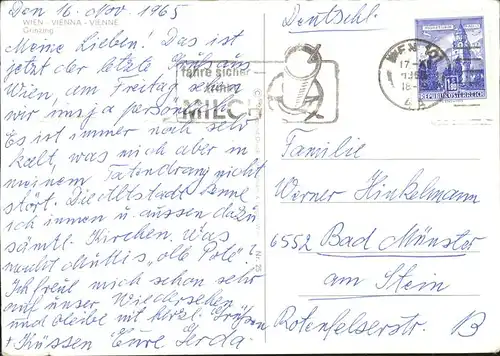 Den 16. Nov. 1965
WIEN - VIENNA - VIENNE
Grinzing
Meine Lieben! Das ist
jetzt der letzte Gruß aus
Wien, am Freitag sehen
wir uns ja persönlich.
Es ist immer noch sehr
kalt, was mich aber in
meinem Tatendrang nicht
stört. Die Altstadt kenne
ich innen u. aussen dazu
sämtl. Kirchen. Was
macht Muttis "olle Pote"?
Ich freue mich schon sehr
auf unser Wiedersehen
und bleibe mit herzl. Grüßen
+ Küssen Eure Gerda
fahre sicher
trinke
MILCH
Deutschl.
WIEN 101
17.XI.
18-
6a
REPUBLIK ÖSTERREICH
Familie
Werner Hinkelmann
6552 Bad Münster
am Stein
Rotenfelserstr. B